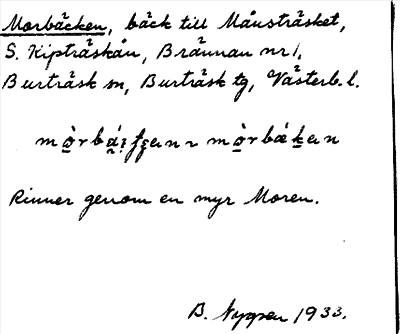 Morbäcken, bäck till Månsträsket,
S. Kipträskån, Brännan nr 1,
Burträsk sn, Burträsk tg, Västerb. l.
Rinner genom en myr Moren.
B. 1933.